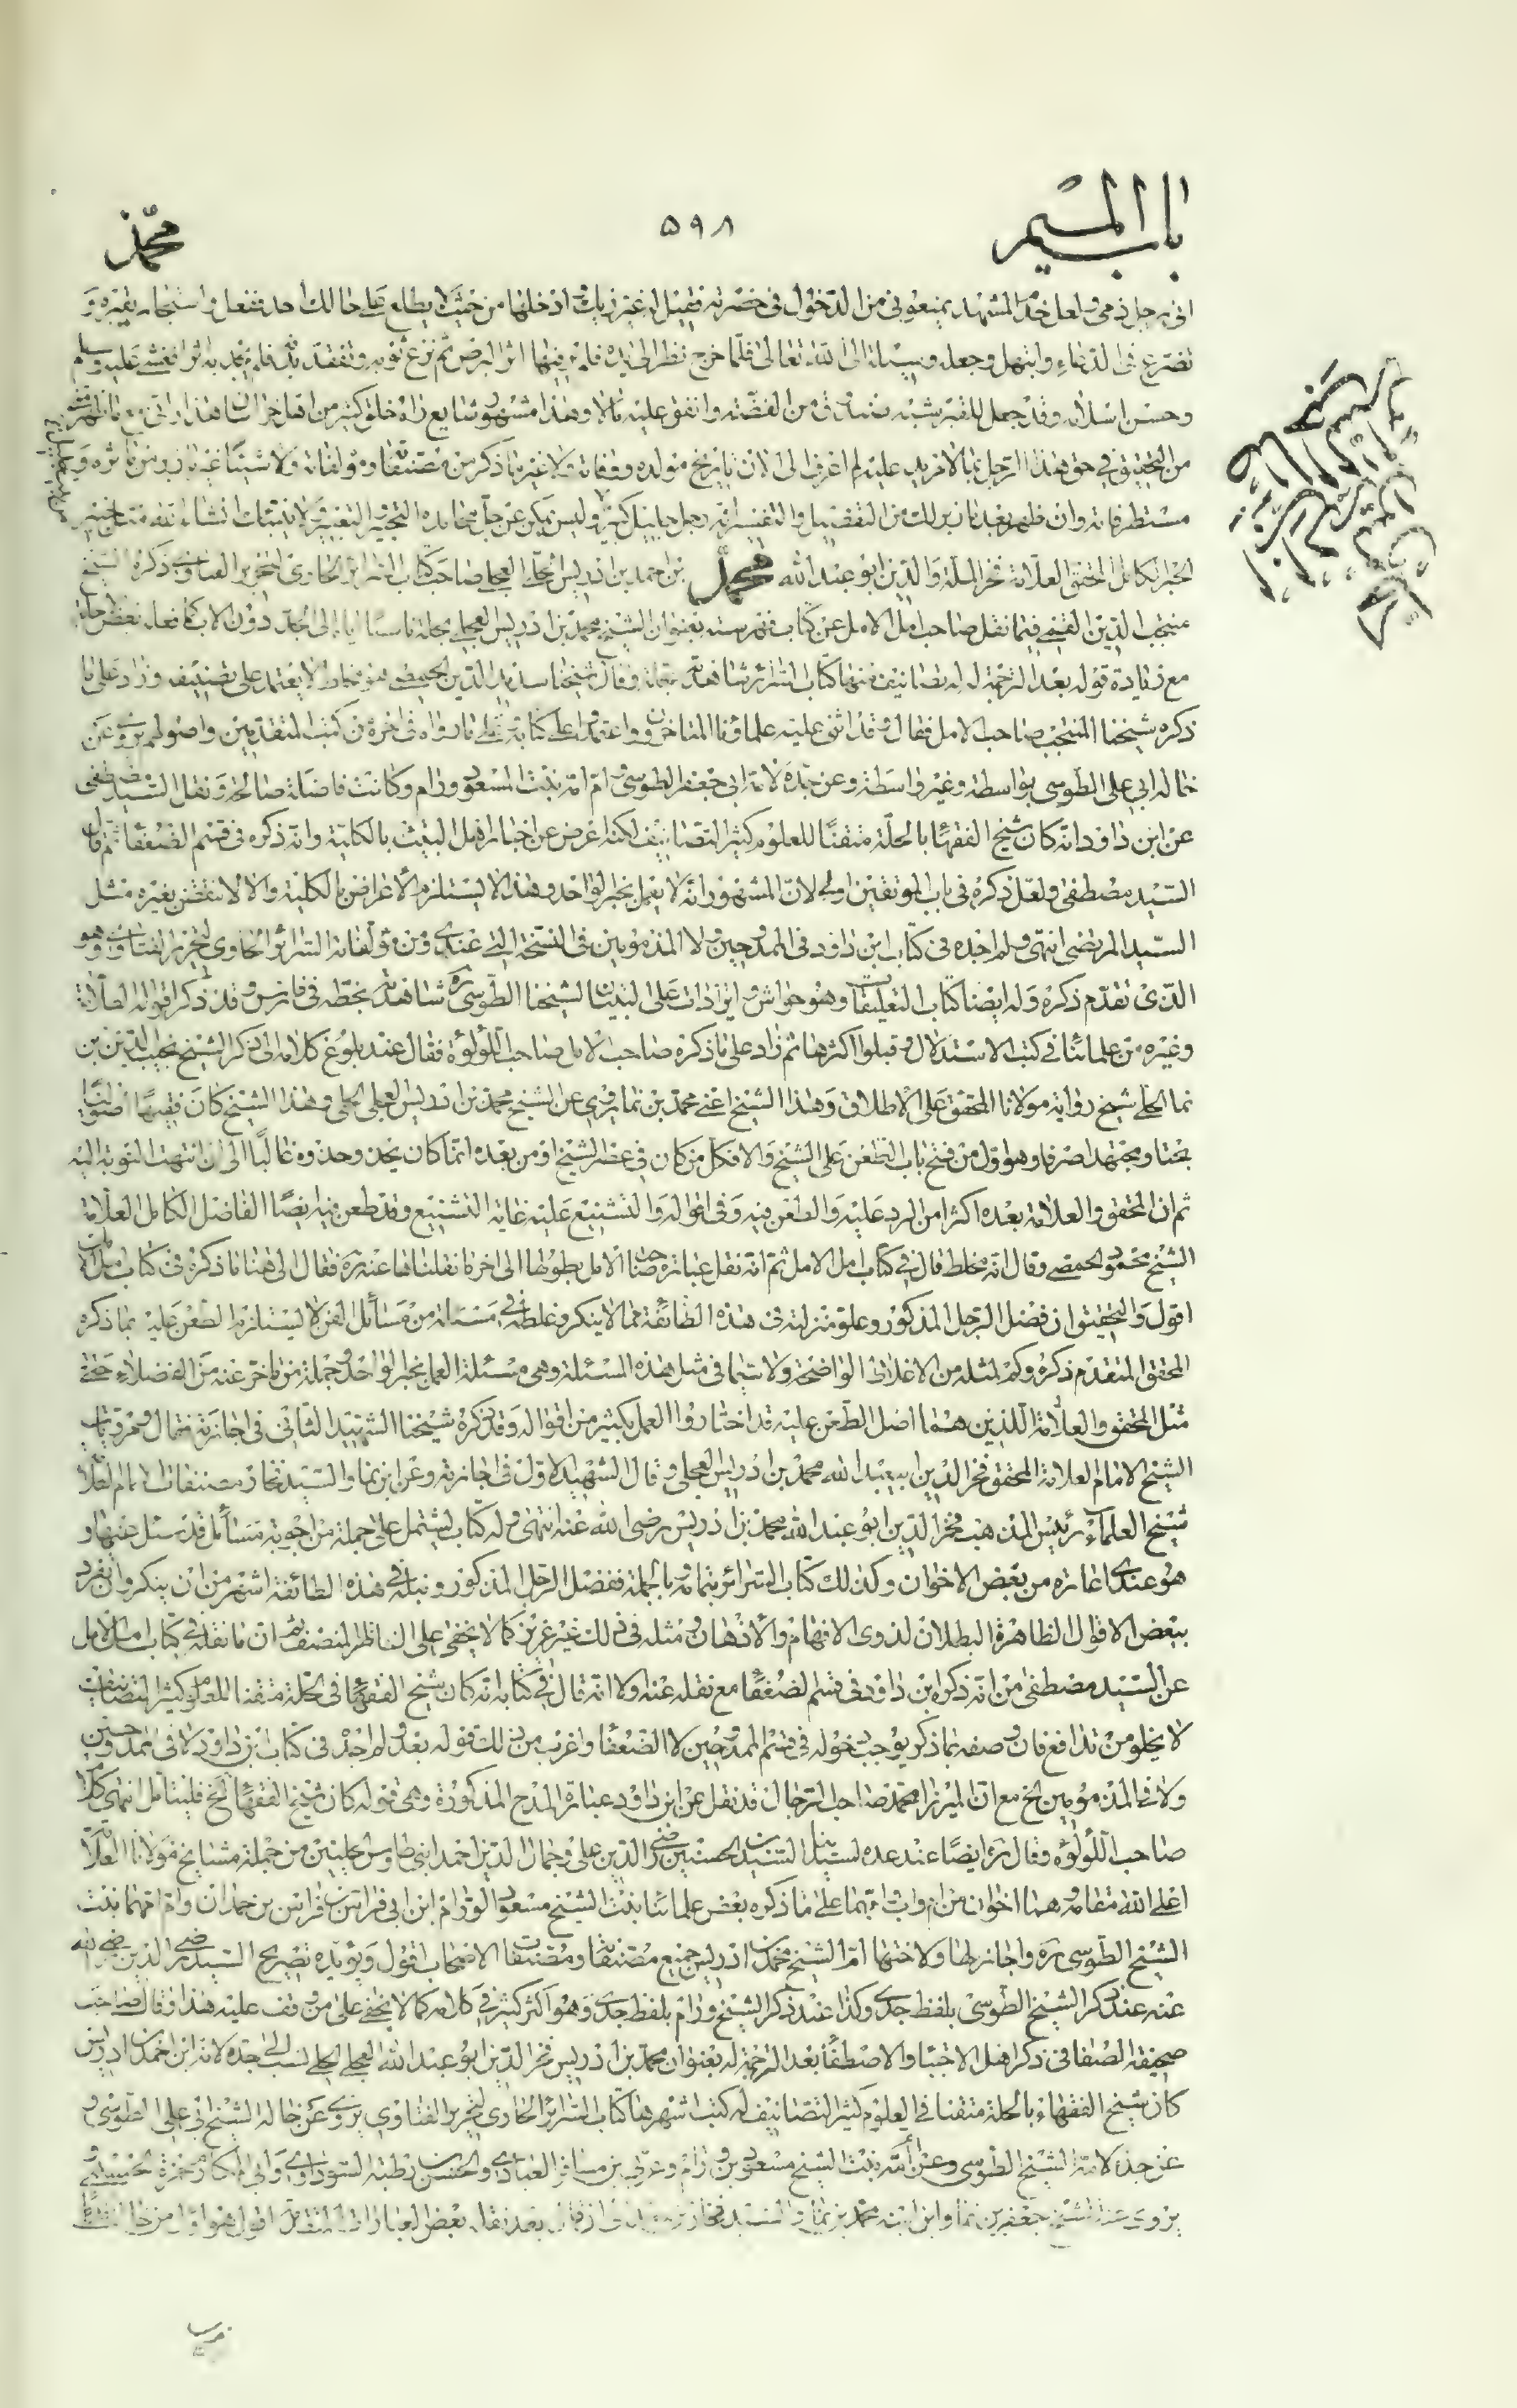 باب الميم
۵۹۸
محمد
انى رجل ذمى ولعل خدام المشهد يمنعونى من الدخول فى حضرته فقيل له غيّر زيك وادخلها من حيث لا يطلع على حالك احد ففعل واستجار بقبره و
تضرع فى الدعاء وابتهل وجعله وسيلة الى الله تعالى فلما خرج نظر الى يده فلم ير فيها اثر البرص ثم نزع ثوبه وتفقد بدنه فلم يجد به اثرا فغشى عليه واسلم
وحسن اسلامه وقد جمل للقبر شبه صندوق من الفضة وانفق عليه مالا وهذا مشهور شايع رآه خلق كثير من اهل خراسان هذا
من التحقيق فى حق هذا الرجل بما لا مزيد عليه لم اعرف الى الان تاريخ مولده ووفاته ولا غير ما ذكر من مصنفاته ومؤلفاته ولا شيئا
مستطرفاته وان ظهر بعد ذلك من التفضيل والتفسير انه رجل جليل كبير وليس يمكن عن جل محامده التحبير والتعبير ولا ينبئك
الحبر الكامل المحقق العلامة فخر الملة والدين ابو عبد الله محمد بن احمد بن ادريس الحلى العجلى صاحب كتاب السرائر الحاوى لتحرير الفتاوى ذكره الشيخ
منتجب الدين القمى فيما نقل صاحب امل الامل عن كتاب فهرسته بعنوان الشيخ محمد بن ادريس العجلى بحلة ناسبا اياه الى الجد دون الاب كما فعله بعض
مع زيادة قوله بعد الترجمة له له تصانيف منها كتاب السرائر شاهدته بحلة وقال شيخنا سديد الدين الحمصى هو مخلط لا يعتمد على تصنيفه وزاد على ما
ذكره شيخنا المنتجب صاحب الامل فقال وقد اثنى عليه علماؤنا المتاخرون واعتمدوا على كتابه وعلى ما رواه فى اخره من كتب المتقدمين واصولهم يروى عن
خاله ابى على الطوسى بواسطة وغير واسطة وعن جده لامه ابى جعفر الطوسى وام امه بنت المسعود ورام وكانت فاضلة صالحة ونقل السيد مصطفى
عن ابن داود انه كان شيخ الفقهاء بالحلة متقنا للعلوم كثير التصانيف لكنه اعرض عن اخبار اهل البيت بالكلية وانه ذكره فى قسم الضعفاء ثم قال
السيد مصطفى ولعل ذكره فى باب الموثقين اولى لان المشهور انه لا يعمل بخبر الواحد وهذا لا يستلزم الاعراض بالكلية والا لانتقض بغيره مثل
السيد المرتضى انتهى ولم اجده فى كتاب ابن داود فى الممدوحين ولا المذمومين فى النسخة التى عندى ومن مؤلفاته السرائر الحاوى لتحرير الفتاوى وهو
الذى تقدم ذكره وله ايضا كتاب التعليقات وهو حواش وايرادات على التبيان لشيخنا الطوسى ره شاهدته بخطه فى فارس وقد ذكر اقواله العلامة
وغيره من علمائنا فى كتب الاستدلال وقبلوا اكثرها ثم زاد على ما ذكره صاحب الامل صاحب اللؤلؤة فقال عند بلوغ كلامه الى ذكر الشيخ نجيب الدين بن
نما الحلى شيخ رواية مولانا المحقق على الاطلاق وهذا الشيخ اعنى محمد بن نما يروى عن الشيخ محمد بن ادريس العجلى الحلى وهذا الشيخ كان فقيها اصوليا
بحتا ومجتهدا صرفا وهو اول من فتح باب الطعن على الشيخ والا فكل من كان فى عصر الشيخ او من بعده انما كان يحذو حذوه غالبا الى ان انتهت النوبة اليه
ثم ان المحقق والعلامة بعده اكثرا من الرد عليه والطعن فيه وفى اقواله والتشنيع عليه غاية التشنيع وقد طعن فيه ايضا الفاضل الكامل العلامة
الشيخ محمود الحمصى وقال انه مخلط قال فى كتاب امل الامل ثم انه نقل عبارة صاحب الامل بطولها الى اخر ما نقلناها عنه ره فقال الى هنا ما ذكره فى كتاب امل الامل
اقول والتحقيق ان فضل الرجل المذكور وعلو منزلته فى هذه الطائفة مما لا ينكر وغلطه فى مسئلة من مسائل الفن لا يستلزم الطعن عليه بما ذكره
المحقق المتقدم ذكره وكم لمثله من الاغلاط الواضحة ولا سيما فى مثل هذه المسئلة وهى مسئلة العمل بخبر الواحد وجملة من تاخر عنه من الفضلاء حتى
مثل المحقق والعلامة اللذين هما اصل الطعن عليه قد اختاروا العمل بكثير من اقواله وقد ذكره شيخنا الشهيد الثانى فى اجازته فقال ومرويات
الشيخ الامام العلامة المحقق فخر الدين ابى عبد الله محمد بن ادريس العجلى وقال الشهيد الاول فى اجازته وعن ابن نما والسيد فخار مصنفات الامام العلامة
شيخ العلماء رئيس المذهب فخر الدين ابو عبد الله محمد بن ادريس رضى الله عنه انتهى وله كتاب يشتمل على جملة من اجوبة مسائل قد سئل عنها و
هو عندى اعارة من بعض الاخوان وكذلك كتاب السرائر بتمامه وبالجملة ففضل الرجل المذكور ونبله فى هذه الطائفة اشهر من ان ينكر وان تفرد
ببعض الاقوال الظاهرة البطلان لذوى الافهام والاذهان ومثله فى ذلك غير عزيز كما لا يخفى على الناظر المنصف ثم ان ما نقله فى كتاب امل الامل
عن السيد مصطفى من انه ذكره ابن داود فى قسم الضعفاء مع نقله عنه اولا انه قال فى كتابه انه كان شيخ الفقهاء فى الحلة متقنا للعلوم كثير التصانيف
لا يخلو من تدافع فان وصفه بما ذكر يوجب دخوله فى قسم الممدوحين لا الضعفاء واغرب من ذلك قوله بعد ولم اجده فى كتاب ابن داود لا فى الممدوحين
ولا فى المذمومين الخ مع ان الميرزا محمد صاحب الرجال قد نقل عن ابن داود عبارة المدح المذكورة وهى قوله كان شيخ الفقهاء الخ فليتامل انتهى كلام
صاحب اللؤلؤة وقال ره ايضا عند عده لسيدينا السندين الحسنيين رضى الدين على وجمال الدين احمد ابنى طاوس الحليين من جملة مشايخ مولانا العلامة
اعلى الله مقامه وهما اخوان من ام واب وامهما على ما ذكره بعض علمائنا بنت الشيخ مسعود الورام ابن ابى فراس بن فراس بن حمدان وام امهما بنت
الشيخ الطوسى ره واجاز لها ولاختها ام الشيخ محمد بن ادريس جميع مصنفاته ومصنفات الاصحاب اقول ويؤيده تصريح السيد رضى الدين رضى الله
عنه عند ذكر الشيخ الطوسى بلفظ جدى وكذا عند ذكر الشيخ ورام بلفظ جدى وهو اكثر كثير فى كلامه كما لا يخفى على من وقف عليه هذا وقال صاحب
صحيفة الصفا فى ذكر اهل الاجتبا والاصطفا بعد الترجمة له بعنوان محمد بن ادريس فخر الدين ابو عبد الله العجلى الحلى نسب الى جده لانه ابن احمد بن ادريس
كان شيخ الفقهاء بالحلة متقنا فى العلوم كثير التصانيف له كتب اشهرها كتاب السرائر الحاوى لتحرير الفتاوى يروى عن خاله الشيخ ابى على الطوسى و
عن جده لامه الشيخ الطوسى وعن امه بنت الشيخ مسعود بن ورام وعربى بن مسافر العبادى والحسن بن رطبة السوراوى وابى المكارم حمزة الحسينى و
يروى عنه الشيخ جعفر بن نما وابن ابنه محمد بن نما والسيد فخار بعد نقل بعض العبارات